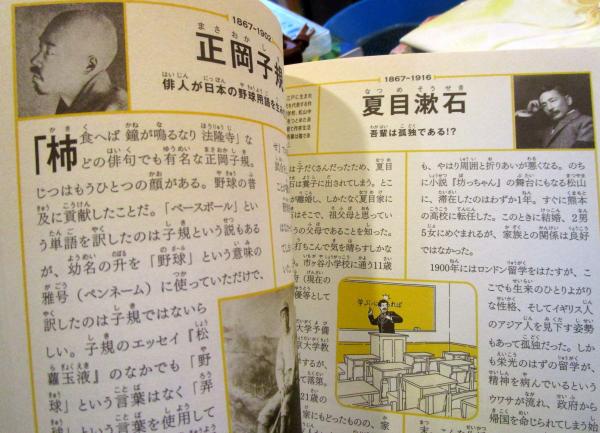 1867~1902
まさおかしき
正岡子規
はいじん にっぽん やきゅうようご
俳人が日本の野球用語を生
「柿食へば 鐘が鳴るなり 法隆寺」な
どの俳句でも有名な正岡子規。
じつはもうひとつの顔がある。野球の普
及に貢献したことだ。「ベースボール」とい
う単語を訳したのは子規という説もある
が、幼名の升を「野球」という意味の
雅号(ペンネーム)に使っていただけで、
訳したのは子規ではないら
しい。子規のエッセイ『松
蘿玉液』のなかでも「野
球」という言葉はなく「弄
球」という言葉を使用して
1867~1916
なつめそうせき
夏目漱石
わがはい こどく
吾輩は孤独である!?
江戸に生まれ
子だくさんだったため、夏目
は養子に出されてしまう。とこ
が離婚し、しかたなく夏目家に
はそこで、祖父母と思ってい
うの父母であることを知った。
打ちこんで気を晴らすしかな
市ヶ谷小学校に通う11歳
府(現在の
優等として
大学予備
京大学教
するが、
て落第。
21歳の
家にもどったものの、家
学ぶ
れば
も、やはり周囲と折りあいが悪くなる。のち
に小説『坊っちゃん』の舞台にもなる松山
に、滞在したのはわずか1年。すぐに熊本
の高校に転任した。このときに結婚、2男
5女にめぐまれるが、家族との関係は良好
ではなかった。
1900年にはロンドン留学をはたすが、こ
こでも生来のひとりよがり
な性格、そしてイギリス人
のアジア人を見下す姿勢
もあって孤独だった。しか
も栄光のはずの留学が、
精神を病んでいるという
ウワサが流れ、政府から
帰国を命じられてしまう始